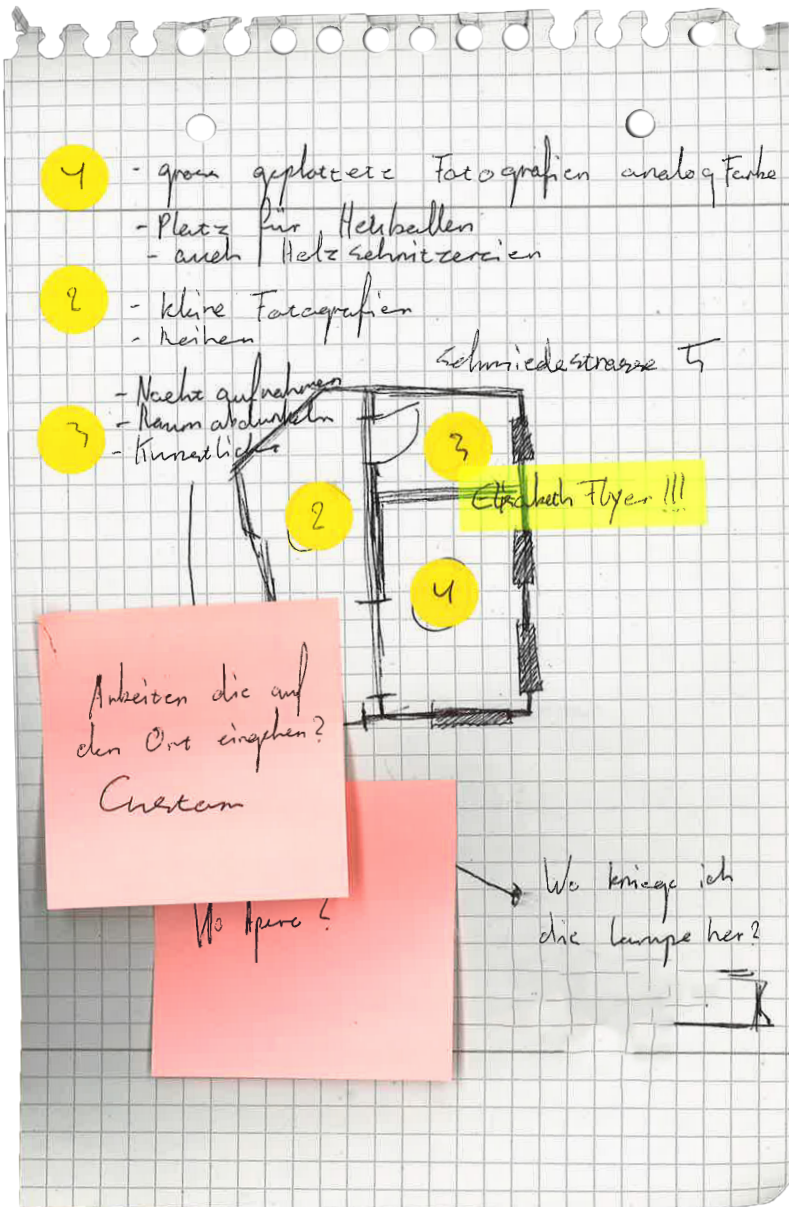 4 - gross geplottete Fotografien analog Farbe
- Platz für
- auch Holzschnitzereien
2 - kleine Fotografien
- Reihen
Schmiedestrasse 5
3 - Nachtaufnahmen
- Raum abdunkeln
- Kunstlicht
3
Elisabeth Flyer!!!
2
4
Arbeiten die auf
den Ort eingehen?
Custom
Wo Apero?
Wo kriege ich
die Lampe her?